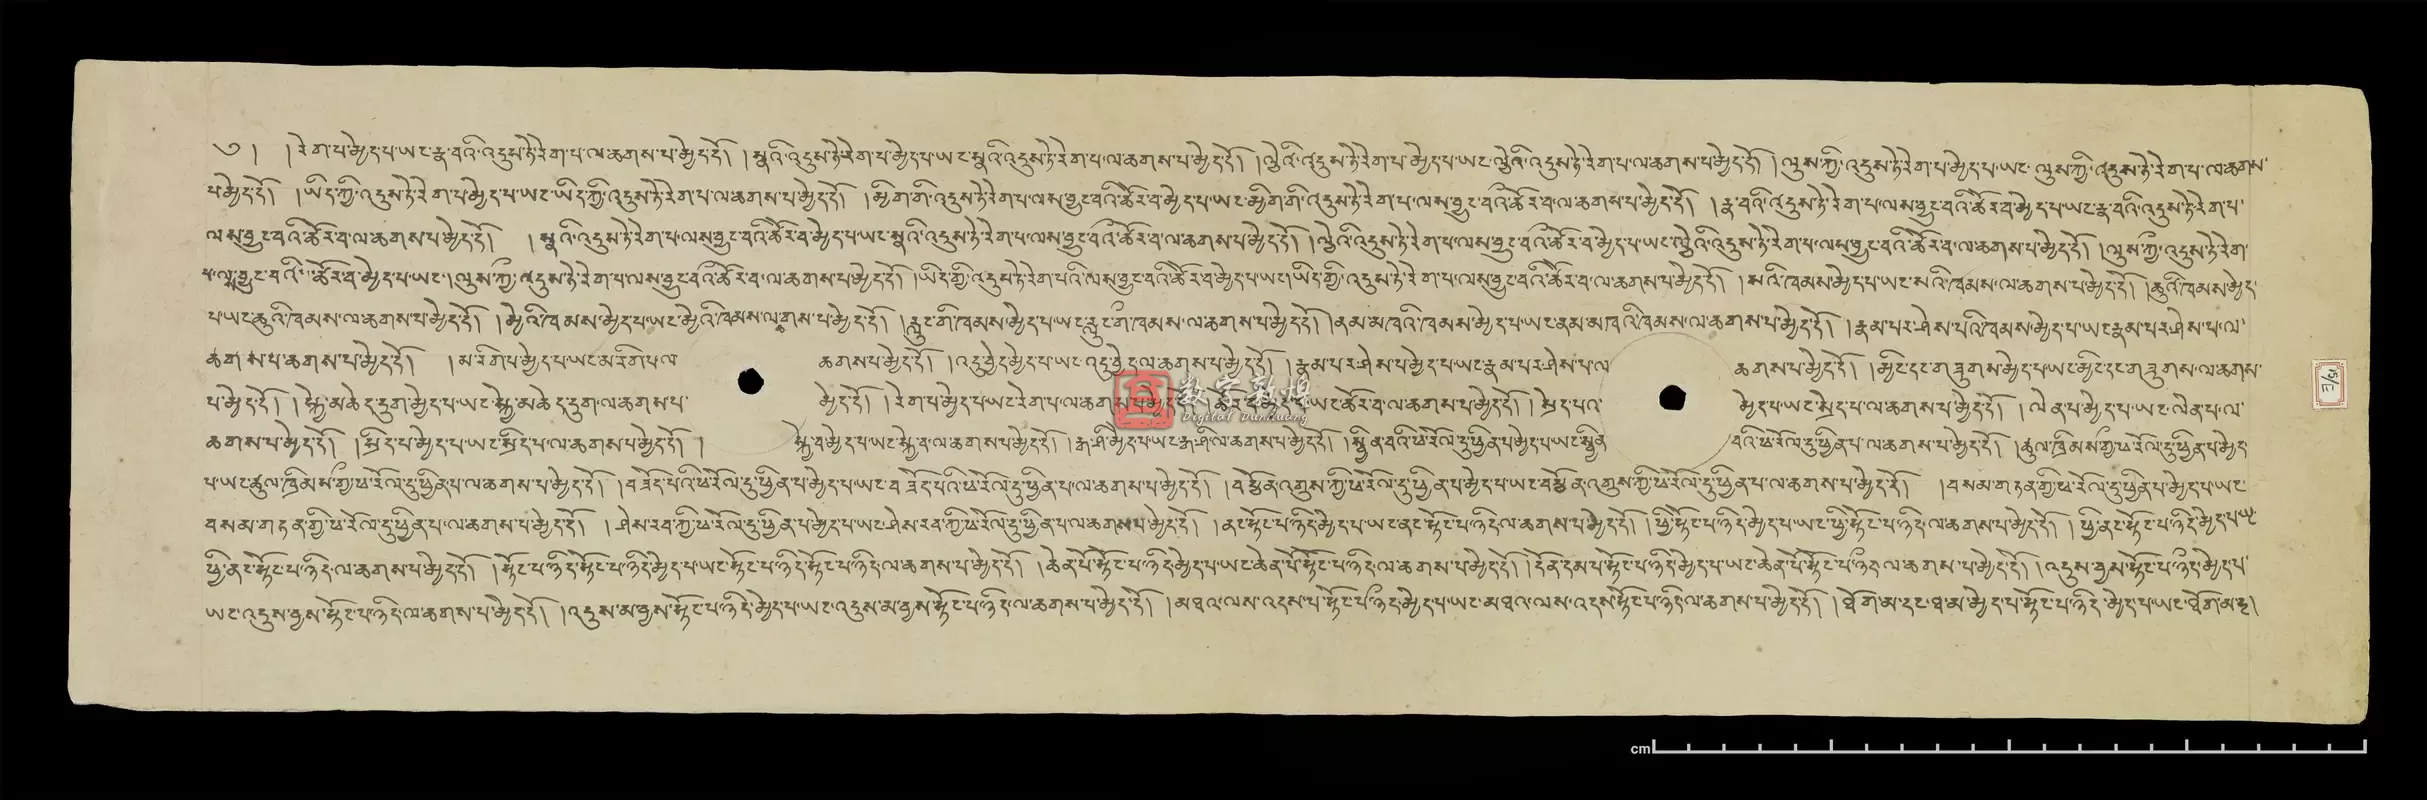 ༄། །རེག་པ་མྱེད་པ་ཡང་རྣ་བའི་འདུས་ཏེ་རེག་པ་ལ་ཆགས་པ་མྱེད་དོ། །སྣའི་འདུས་ཏེ་རེག་པ་མྱེད་པ་ཡང་སྣའི་འདུས་ཏེ་རེག་པ་ལ་ཆགས་པ་མྱེད་དོ། །ལྕེའི་འདུས་ཏེ་རེག་པ་མྱེད་པ་ཡང་ལྕེའི་འདུས་ཏེ་རེག་པ་ལ་ཆགས་པ་མྱེད་དོ། །ལུས་ཀྱི་འདུས་ཏེ་རེག་པ་མྱེད་པ་ཡང་ལུས་ཀྱི་འདུས་ཏེ་རེག་པ་ལ་ཆགས་
པ་མྱེད་དོ། །ཡིད་ཀྱི་འདུས་ཏེ་རེག་པ་མྱེད་པ་ཡང་ཡིད་ཀྱི་འདུས་ཏེ་རེག་པ་ལ་ཆགས་པ་མྱེད་དོ། །མྱིག་གི་འདུས་ཏེ་རེག་པ་ལས་བྱུང་བའི་ཚོར་བ་མྱེད་པ་ཡང་མྱིག་གི་འདུས་ཏེ་རེག་པ་ལས་བྱུང་བའི་ཚོར་བ་ལ་ཆགས་པ་མྱེད་དོ། །རྣ་བའི་འདུས་ཏེ་རེག་པ་ལས་བྱུང་བའི་ཚོར་བ་མྱེད་པ་ཡང་རྣ་བའི་འདུས་ཏེ་རེག་པ་
ལས་བྱུང་བའི་ཚོར་བ་ལ་ཆགས་པ་མྱེད་དོ། །སྣའི་འདུས་ཏེ་རེག་པ་ལས་བྱུང་བའི་ཚོར་བ་མྱེད་པ་ཡང་སྣའི་འདུས་ཏེ་རེག་པ་ལས་བྱུང་བའི་ཚོར་བ་ལ་ཆགས་པ་མྱེད་དོ། །ལྕེའི་འདུས་ཏེ་རེག་པ་ལས་བྱུང་བའི་ཚོར་བ་མྱེད་པ་ཡང་ལྕེའི་འདུས་ཏེ་རེག་པ་ལས་བྱུང་བའི་ཚོར་བ་ལ་ཆགས་པ་མྱེད་དོ། །ལུས་ཀྱི་འདུས་ཏེ་རེག་
བྱུང་བའི་ཚོར་བ་མྱེད་པ་ཡང་།ལུས་ཀྱི་འདུས་ཏེ་རེག་པ་ལས་བྱུང་བའི་ཚོར་བ་ལ་ཆགས་པ་མྱེད་དོ། །ཡིད་ཀྱི་འདུས་ཏེ་རེག་པའི་ལས་བྱུང་བའི་ཚོར་བ་མྱེད་པ་ཡང་ཡིད་ཀྱི་འདུས་ཏེ་རེག་པ་ལས་བྱུང་བའི་ཚོར་བ་ལ་ཆགས་པ་མྱེད་དོ། །སའི་ཁམས་མྱེད་པ་ཡང་སའི་ཁམས་ལ་ཆགས་པ་མྱེད་དོ། །ཆུའི་ཁམས་མྱེད་
པ་ཡང་ཆུའི་ཁམས་ལ་ཆགས་པ་མྱེད་དོ། །མྱེའི་ཁམས་མྱེད་པ་ཡང་མྱེའི་ཁམས་ལ་ཆགས་པ་མྱེད་དོ། །རླུང་གི་ཁམས་མྱེད་པ་ཡང་རླུང་གི་ཁམས་ལ་ཆགས་པ་མྱེད་དོ། །ནམ་མཁའི་ཁམས་མྱེད་པ་ཡང་ནམ་མཁའི་ཁམས་ལ་ཆགས་པ་མྱེད་དོ། །རྣམ་པར་ཤེས་པའི་ཁམས་མྱེད་པ་ཡང་རྣམ་པར་ཤེས་པ་ལ་
ཆགས་པ་ཆགས་པ་མྱེད་དོ། །མ་རིག་པ་མྱེད་པ་ཡང་མ་རིག་པ་ལ ཆགས་པ་མྱེད་དོ། །འདུ་བྱེད་མྱེད་པ་ཡང་འདུ་བྱེད་ལ་ཆགས་པ་མྱེད་དོ། །རྣམ་པར་ཤེས་པ་མྱེད་པ་ཡང་རྣམ་པར་ཤེས་པ་ལ ཆགས་པ་མྱེད་དོ། །མྱིང་དང་གཟུགས་མྱེད་པ་ཡང་མྱིང་དང་གཟུགས་ལ་ཆགས་
པ་མྱེད་དོ། །སྐྱེ་མཆེད་དྲུག་མྱེད་པ་ཡང་སྐྱེ་མཆེད་དྲུག་ལ་ཆགས་པ་ མྱེད་དོ། །རེག་པ་མྱེད་པ་ཡང་རེག་པ་ལ་ཆགས་པ་མྱེད་དོ། །ཚོར་བ་མྱེད་པ་ཡང་ཚོར་བ་ལ་ཆགས་པ་མྱེད་དོ། །སྲེད་པའ་ མྱེད་པ་ཡང་སྲེད་པ་ལ་ཆགས་པ་མྱེད་དོ། །ལེན་པ་མྱེད་པ་ཡང་ལེན་པ་ལ་
ཆགས་པ་མྱེད་དོ། །སྲིད་པ་མྱེད་པ་ཡང་སྲིད་པ་ལ་ཆགས་པ་མྱེད་དོ། ། སྐྱེ་བ་མྱེད་པ་ཡང་སྐྱེ་བ་ལ་ཆགས་པ་མྱེད་དོ། །རྒ་ཤི་མྱེད་པ་ཡང་རྒ་ཤི་ལ་ཆགས་པ་མྱེད་དོ། །སྦྱིན་བའི་ཕ་རོལ་དུ་ཕྱིན་པ་མྱེད་པ་ཡང་སྦྱིན བའི་ཕ་རོལ་དུ་ཕྱིན་པ་ལ་ཆགས་པ་མྱེད་དོ། །ཚུལ་ཁྲིམས་ཀྱི་ཕ་རོལ་དུ་ཕྱིན་པ་མྱེད་
པ་ཡང་ཚུལ་ཁྲིམས་ཀྱི་ཕ་རོལ་དུ་ཕྱིན་པ་ལ་ཆགས་པ་མྱེད་དོ། །བཟོད་པའི་ཕ་རོལ་དུ་ཕྱིན་པ་མྱེད་པ་ཡང་བཟོད་པའི་ཕ་རོལ་དུ་ཕྱིན་པ་ལ་ཆགས་པ་མྱེད་དོ། །བརྩོན་འགྲུས་ཀྱི་ཕ་རོལ་དུ་ཕྱིན་པ་མྱེད་པ་ཡང་བརྩོན་འགྲུས་ཀྱི་ཕ་རོལ་དུ་ཕྱིན་པ་ལ་ཆགས་པ་མྱེད་དོ། །བསམ་གཏན་གྱི་ཕ་རོལ་དུ་ཕྱིན་པ་མྱེད་པ་ཡང་
བསམ་གཏན་གྱི་ཕ་རོལ་དུ་ཕྱིན་པ་ལ་ཆགས་པ་མྱེད་དོ། །ཤེས་རབ་ཀྱི་ཕ་རོལ་དུ་ཕྱིན་པ་མྱེད་པ་ཡང་ཤེས་རབ་ཀྱི་ཕ་རོལ་དུ་ཕྱིན་པ་ལ་ཆགས་པ་མྱེད་དོ། །ནང་སྟོང་པ་ཉིད་མྱེད་པ་ཡང་ནང་སྟོང་པ་ཉིད་ལ་ཆགས་པ་མྱེད་དོ། །ཕྱི་སྟོང་པ་ཉིད་མྱེད་པ་ཡང་ཕྱི་སྟོང་པ་ཉིད་ལ་ཆགས་པ་མྱེད་དོ། །ཕྱི་ནང་སྟོང་པ་ཉིད་མྱེད་པ་ཡང་
ཕྱི་ནང་སྟོང་པ་ཉིད་ལ་ཆགས་པ་མྱེད་དོ། །སྟོང་པ་ཉིད་སྟོང་པ་ཉིད་མྱེད་པ་ཡང་སྟོང་པ་ཉིད་སྟོང་པ་ཉིད་ལ་ཆགས་པ་མྱེད་དོ། །ཆེན་པོ་སྟོང་པ་ཉིད་མྱེད་པ་ཡང་ཆེན་པོ་སྟོང་པ་ཉིད་ལ་ཆགས་པ་མྱེད་དོ། །དོན་དམ་པ་སྟོང་པ་ཉིད་མྱེད་པ་ཡང་ཆེན་པོ་སྟོང་པ་ཉིད་ལ་ཆགས་པ་མྱེད་དོ། །འདུས་བྱས་སྟོང་པ་ཉིད་མྱེད་པ་
ཡང་འདུས་བྱས་སྟོང་པ་ཉིད་ལ་ཆགས་པ་མྱེད་དོ། །འདུས་མ་བྱས་སྟོང་པ་ཉིད་མྱེད་པ་ཡང་འདུས་མ་བྱས་སྟོང་པ་ཉིད་ལ་ཆགས་པ་མྱེད་དོ། །མཐའ་ལས་འདས་པ་སྟོང་པ་ཉིད་མྱེད་པ་ཡང་མཐའ་ལས་འདས་སྟོང་པ་ཉིད་ལ་ཆགས་པ་མྱེད་དོ། །ཐོག་མ་དང་ཐ་མ་མྱེད་པ་སྟོང་པ་ཉིད་མྱེད་པ་ཡང་ཐོག་མ་དང་།
数字敦煌
Digital Dunhuang
cm